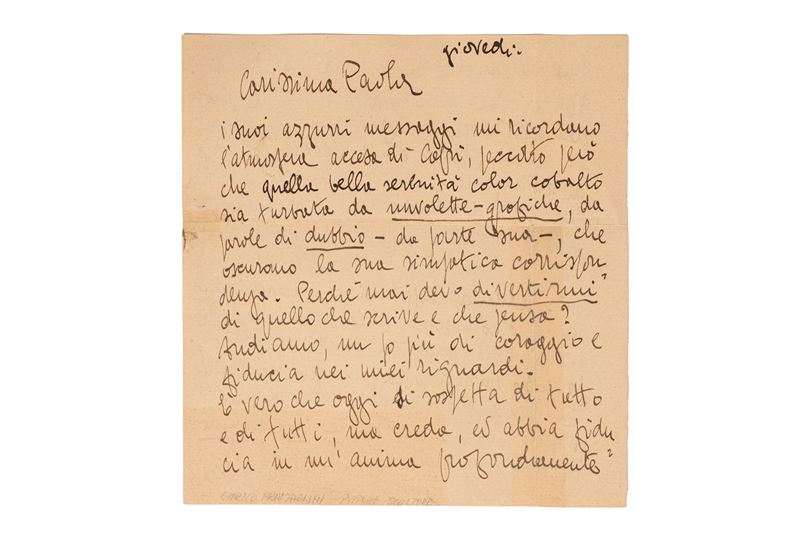 giovedì.
Carissima Paola
i suoi azzurri messaggi mi ricordano
l'atmosfera accesa di Capri, peccato però
che quella bella serenità color cobalto
sia turbata da nuvolette-grafiche, da
parole di dubbio - da parte sua -, che
oscurano la sua simpatica corrispon
denza. Perchè mai devo divertirmi"
di quello che scrive e che pensa?
Andiamo, un po più di coraggio e
fiducia nei miei riguardi.
E' vero che oggi si sospetta di tutto
e di tutti, ma creda, ed abbia fidu
cia in un'anima profondamente